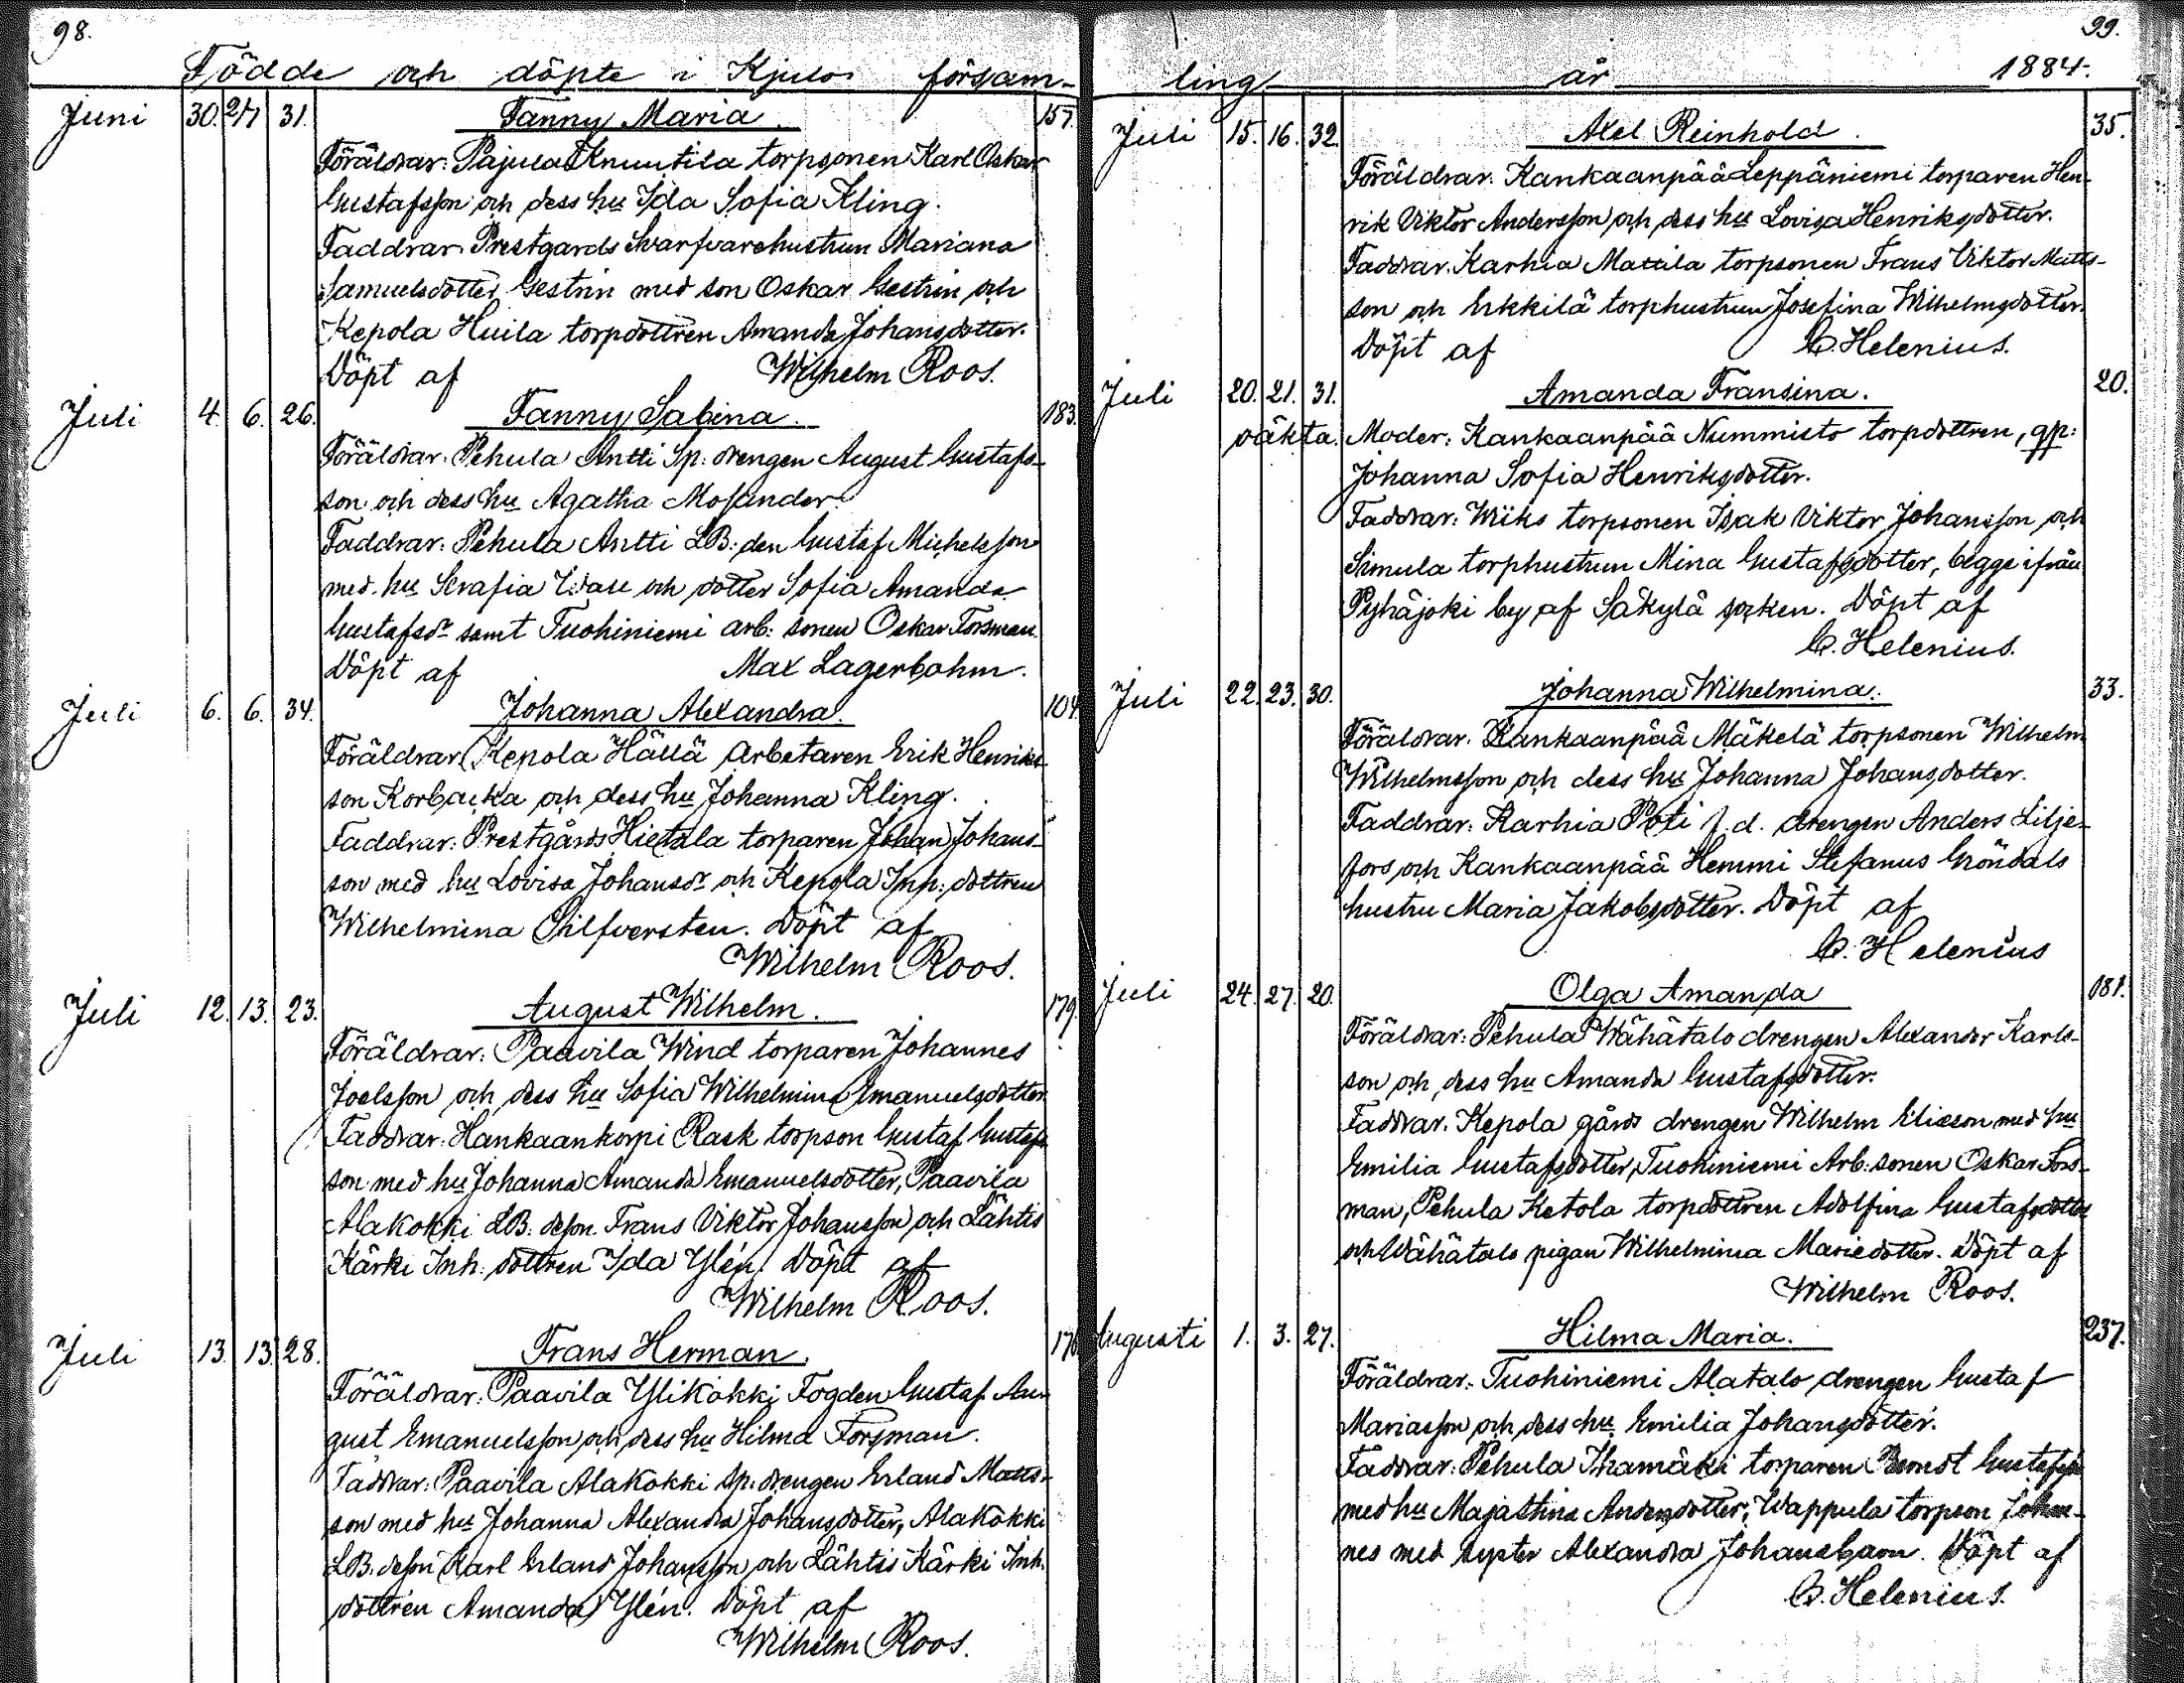 98.
Födde och döpte i Kjulo försam-
Juni 30. 2/7 31. Fanny Maria. 157.
Föräldrar: Pajula Knuutila torpsonen Karl Oskar
Gustafsson och dess hu Ida Sofia Kling.
Faddrar: Prestgards Svarfvarehustrun Mariana
Samuelsdotter Gestrin med son Oskar Gestrin och
Kepola Huila torpdottren Amanda Johansdotter.
Döpt af Wilhelm Roos.
Juli 4. 6. 26. Fanny Sabina. 183.
Föräldrar: Pehula Antti Sp: drengen August Gustafs-
son och dess hu Agatha Mosander.
Faddrar: Pehula Antti LB: den Gustaf Michelsson
med hu Serafia och dotter Sofia Amanda
Gustafsdr samt Tuohiniemi arb: sonen Oskar Forsman.
Döpt af Max Lagerbohm.
Juli 6. 6. 34. Johanna Alexandra. 104.
Föräldrar: Kepola Hällä Arbetaren Erik Henriks-
son Korbacka och dess hu Johanna Kling.
Faddrar: Prestgårds Hietala torparen Johan Johans-
son med hu Lovisa Johansdr och Kepola Inh: dottren
Wilhelmina Silfversten. Döpt af
Wilhelm Roos.
Juli 12. 13. 23. August Wilhelm. 179.
Föräldrar: Paavila Wind torparen Johannes
Joelsson och dess hu Sofia Wilhelmina Emanuelsdotter.
Faddrar: Hankaankorpi Rask torpson Gustaf Gustafs-
son med hu Johanna Amanda Emanuelsdotter, Paavila
Alakokki LB: deson Frans Viktor Johansson och Lähtis
Kärki Inh: dottren Ida Ylén. Döpt af
Wilhelm Roos.
Juli 13. 13. 28. Frans Herman.
Föräldrar: Paavila Ylikokki Fogden Gustaf Au-
gust Emanuelsson och dess hu Hilma Forsman.
Faddrar: Paavila Alakokki Sp: drengen Erland Matts-
son med hu Johanna Alexandra Johansdotter, Alakokki
LB: deson Karl Erland Johansson och Lähtis Kärki Inh.
dottren Amanda Ylén. Döpt af
Wilhelm Roos.
99.
ling år 1884.
Juli 15. 16. 32. Axel Reinhold. 35.
Föräldrar: Kankaanpää Leppäniemi torparen Hen-
rik Viktor Andersson och dess hu Lovisa Henriksdotter.
Faddrar: Karhia Mattila torpsonen Frans Viktor Matts-
son och Erkkilä torphustrun Josefina Wilhelmsdotter.
Döpt af C. Helenius.
Juli 20. 21. 31. Amanda Fransina. 20.
oäkta. Moder: Kankaanpää Nummisto torpdottren, qp:
Johanna Sofia Henriksdotter.
Faddrar: Wiiks torpsonen Isak Viktor Johansson och
Simula torphustrun Mina Gustafsdotter, begge ifrån
Pyhäjoki by af Säkylä socken. Döpt af
C. Helenius.
Juli 22. 23. 30. Johanna Wilhelmina. 33.
Föräldrar: Kankaanpää Mäkelä torpsonen Wilhelm
Wilhelmsson och dess hu Johanna Johansdotter.
Faddrar: Karhia Poti f. d. drengen Anders Lilje-
fors och Kankaanpää Hemmi Stefanus Gröndals
hustru Maria Jakobsdotter. Döpt af
C. Helenius
Juli 24. 27. 20. Olga Amanda 181.
Föräldrar: Pehula Wähätalo drengen Alexander Karls-
son och dess hu Amanda Gustafsdotter.
Faddrar: Kepola gårds drengen Wilhelm Eliasson med hu
Emilia Gustafsdotter, Tuohiniemi Arb: sonen Oskar Fors-
man, Pehula Ketola torpdottren Adolfina Gustafsdotter
och Wähätalo pigan Wilhelmina Mariedotter. Döpt af
Wilhelm Roos.
Augusti 1. 3. 27. Hilma Maria. 237.
Föräldrar: Tuohiniemi Alatalo drengen Gustaf
Mariasson och dess hu Emilia Johansdotter.
Faddrar: Pehula Ihamäki torparen Berndt Gustafsson
med hu Maja Stina Andersdotter, Wappula torpson Johan-
nes med syster Alexandra Johansbarn. Döpt af
C. Helenius.